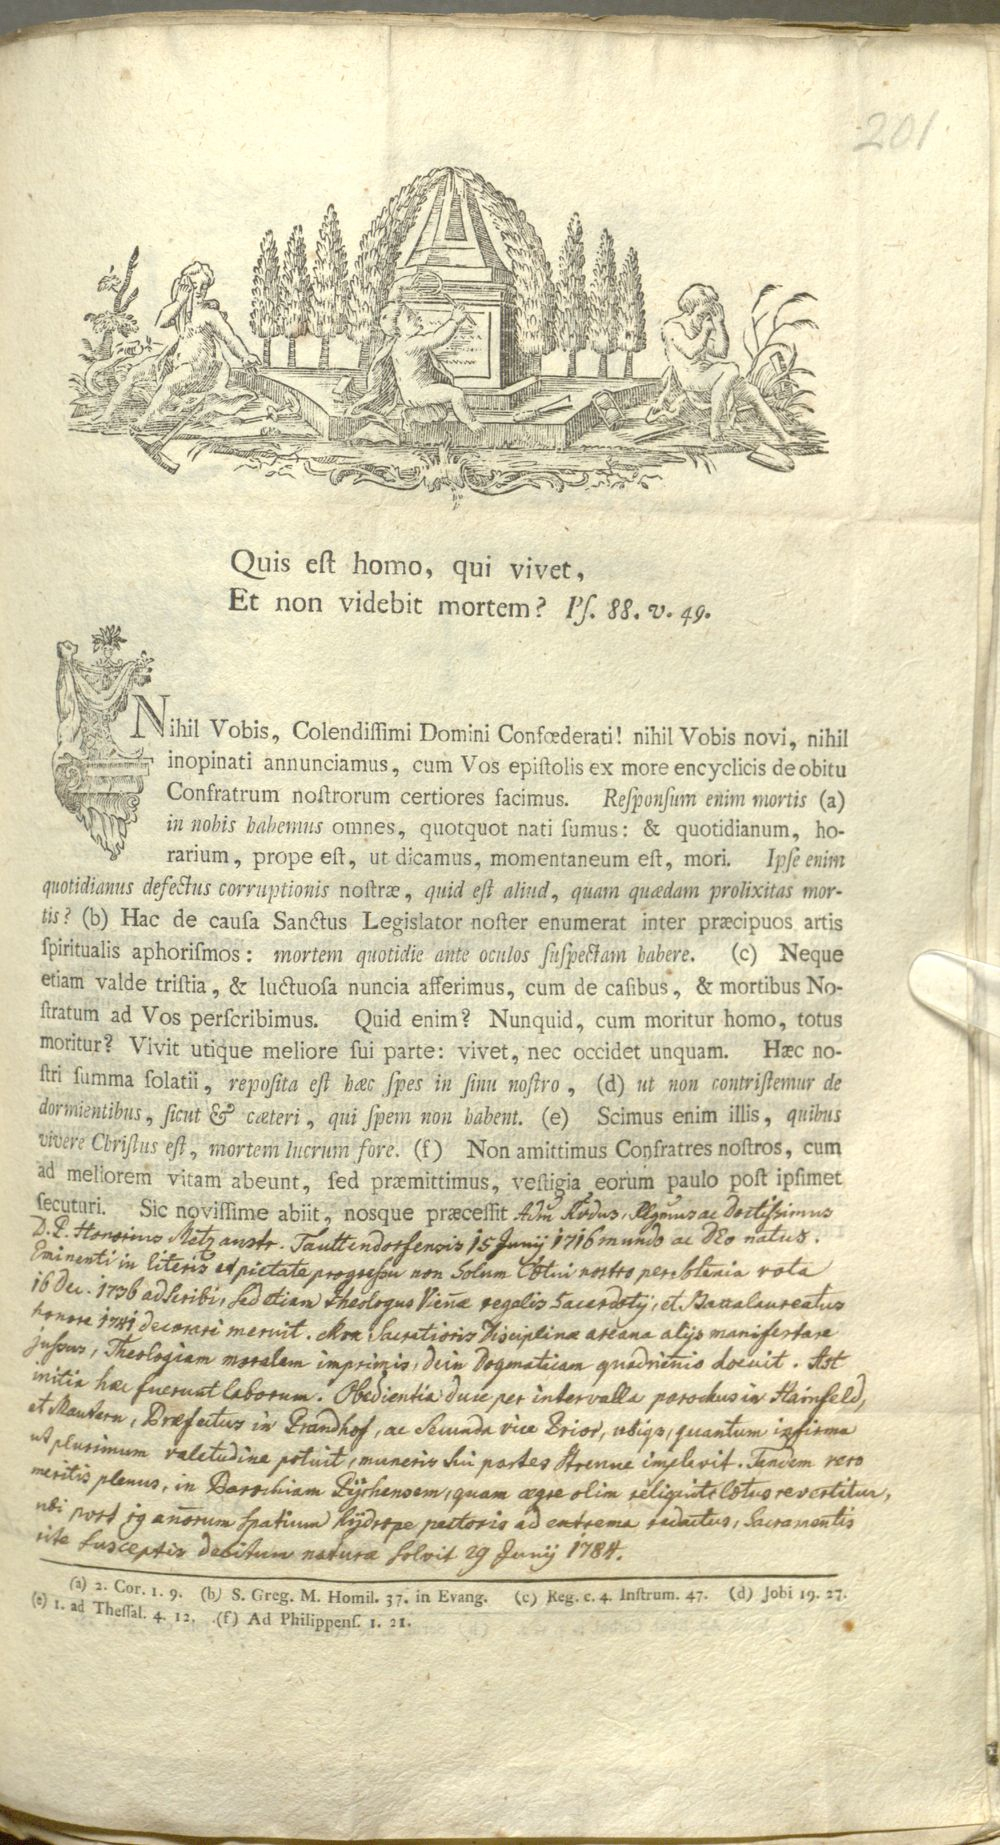 201
Quis est homo, qui vivet,
Et non videbit mortem? Ps. 88. v. 49.
Nihil Vobis, Colendissimi Domini Confœderati! nihil Vobis novi, nihil
inopinati annunciamus, cum Vos epistolis ex more encyclicis de obitu
Confratrum nostrorum certiores facimus. Responsum enim mortis (a)
in nobis habemus omnes, quotquot nati sumus: & quotidianum, ho-
rarium, prope est, ut dicamus, momentaneum est, mori. Ipse enim
quotidianus defectus corruptionis nostræ, quid est aliud, quam quædam prolixitas mor-
tis? (b) Hac de causa Sanctus Legislator noster enumerat inter præcipuos artis
spiritualis aphorismos: mortem quotidie ante oculos suspectam habere. (c) Neque
etiam valde tristia, & luctuosa nuncia afferimus, cum de casibus, & mortibus No-
stratum ad Vos perscribimus. Quid enim? Nunquid, cum moritur homo, totus
moritur? Vivit utique meliore sui parte: vivet, nec occidet unquam. Hæc no-
stri summa solatii, reposita est hæc spes in sinu nostro, (d) ut non contristemur de
dormientibus, sicut & cæteri, qui spem non habent. (e) Scimus enim illis, quibus
vivere Christus est, mortem lucrum fore. (f) Non amittimus Confratres nostros, cum
ad meliorem vitam abeunt, sed præmittimus, vestigia eorum paulo post ipsimet
secuturi. Sic novissime abiit, nosque præcessit Adm Rdus, Religmus ac Doctissimus
D. P. Honorius Metz austr. Tauttendorfensis 15 Junij 1716 mundo ac DEo natus.
Eminenti in literis et pietate progressu non solum Cœtui nostro per solenia vota
16 Dec. 1736 adscribi, sed etiam Theologus Vienæ regalis Sacerdotij, et Baccalaureatus
honore 1741 decorari meruit. Mox Sacratioris Disciplinæ arcana alijs manifestare
jussus, Theologiam moralem imprimis, dein Dogmaticam quadrienio docuit. Ast
initia hæc fuerunt laborum. Obedientia duce per intervalla parochus in Hainfeld,
et Mautern, Præfectus in Grandhof, ac Secunda vice Prior, ubiqs, quantum infirma
ut plurimum valetudine potuit, muneris sui partes strenue implevit. Tandem vero
meritis plenus, in Parochiam Pÿrhensem, quam ægre olim reliquit lætus revertitur,
ubi post 19 añorum spatium hÿdrope pectoris ad extrema redactus, Sacramentis
rite susceptis debitum naturæ solvit 29 Junij 1784.
(a) 2. Cor. 1. 9. (b) S. Greg. M. Homil. 37. in Evang. (c) Reg. c. 4. Instrum. 47. (d) Jobi 19. 27.
(e) 1. ad Thessal. 4. 12. (f) Ad Philippens. 1. 21.